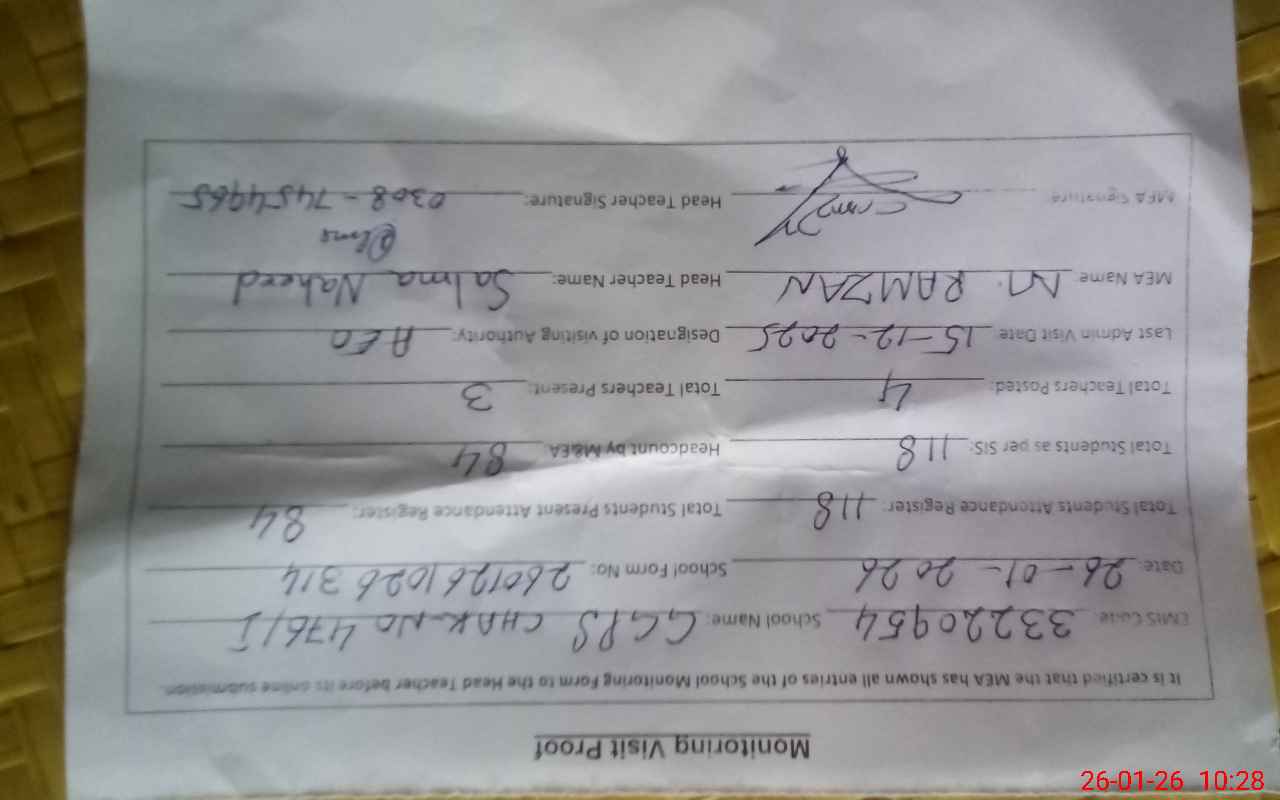 Monitoring Visit Proof
It is certified that the MEA has shown all entries of the School Monitoring Form to the Head Teacher before its online submission.
EMIS Code: 33220954 School Name: GGPS CHAK NO 476/I
Date: 26-01-2026 School Form No: 2601261026314
Total Students Attendance Register: 118 Total Students Present Attendance Register: 84
Total Students as per SIS: 118 Headcount by M&EA: 84
Total Teachers Posted: 4 Total Teachers Present: 3
Last Admin Visit Date: 15-12-2025 Designation of visiting Authority: AEO
MEA Name: M. RAMZAN Head Teacher Name: Salma Naheed
MEA Signature: Head Teacher Signature: 0308-7454965
26-01-26 10:28